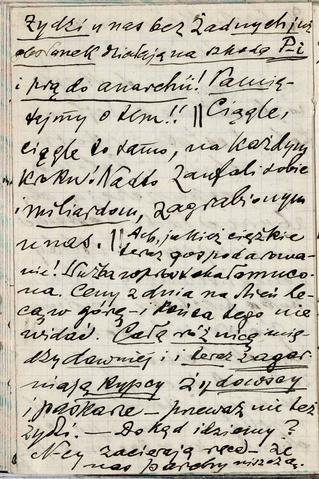 Żydzi u nas bez żadnych już
obsłonek działają na szkodę P-i
i prą do anarchii! Pamię-
tajmy o tem!! || Ciągle,
ciągle to samo, na każdym
kroku! Nadto zaufali sobie
i miliardom, zagrabionym
u nas. || Ach, jakież ciężkie
teraz gospodarowa-
nie! Służba rozpróżniaczona
na. Ceny z dnia na dzień le-
cą w górę – i końca tego nie
widać. Całą różnicę mię-
dzy dawniej i teraz zagar-
niają kupcy żydowscy
i paskarze – przeważnie też
żydzi. – Dokąd idziemy?
zacierają ręce – że
nas parchy niszczą.